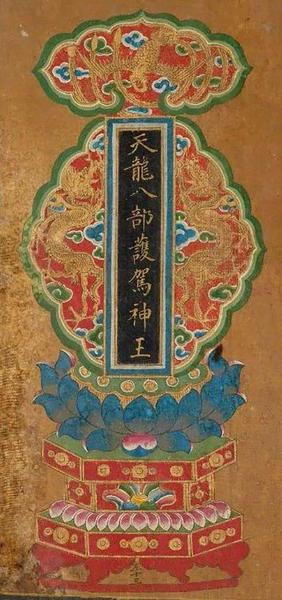 天龍八部護駕神王